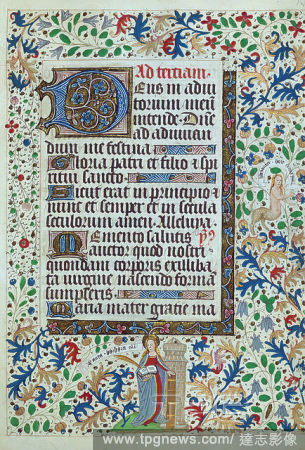 Ad tertiam.
Deus in adiu
torium meū
intende. Dn̄e
ad adiuuan
dum me festina
Gloria patri et filio & spi
ritui sancto.
Sicut erat in principio &
nunc et semper & in secula
seculorum amen. Alleluya.
Memento salutis
auctor quod nostri
quondam corporis ex illiba
ta uirgine nascendo formā
sumpseris.
Maria mater gracie ma
www.tpgnews.com / 達志影像